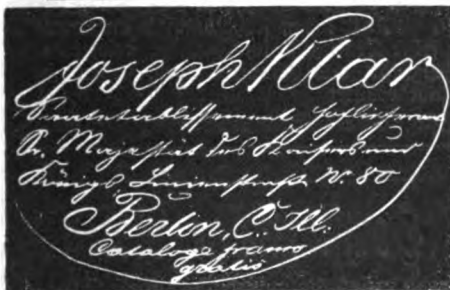 Joseph Klar
Hoflieferant
Sr. Majestät des Kaisers und
Königs, Linienstraße N. 80
Berlin, C. Ill.
Cataloge franco
gratis